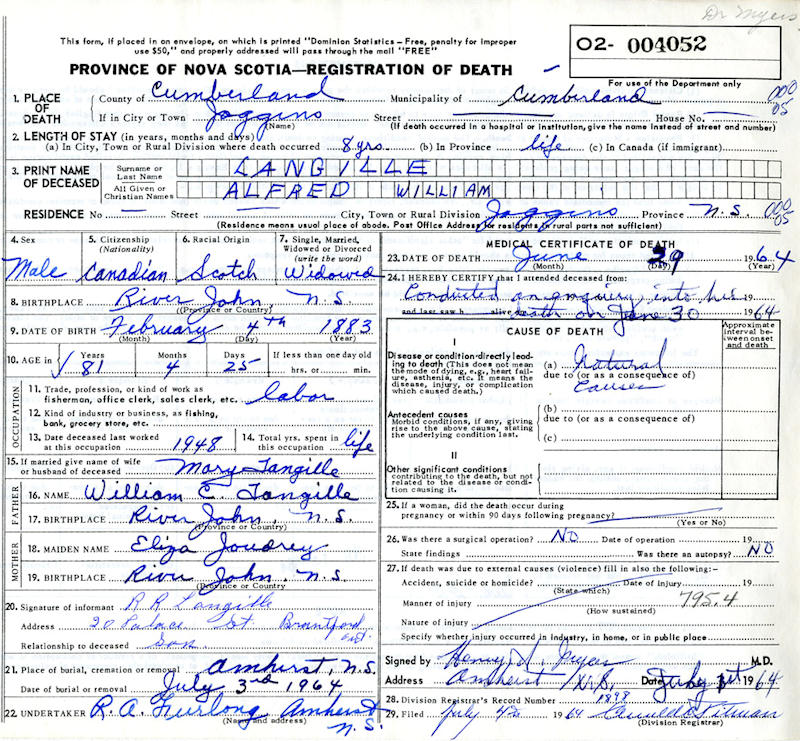 Dr Myers
This form, if placed in an envelope, on which is printed "Dominion Statistics – Free, penalty for improper
use $50," and properly addressed will pass through the mail "FREE"
02- 004052
PROVINCE OF NOVA SCOTIA—REGISTRATION OF DEATH
For use of the Department only
1. PLACE OF DEATH County of Cumberland Municipality of Cumberland 000 05
If in City or Town Joggins (Name) Street House No.
(If death occurred in a hospital or institution, give the name instead of street and number)
2. LENGTH OF STAY (in years, months and days)
(a) In City, Town or Rural Division where death occurred 8 yrs. (b) In Province life (c) In Canada (if immigrant)
3. PRINT NAME OF DECEASED Surname or Last Name LANGILLE
All Given or Christian Names ALFRED WILLIAM
RESIDENCE No — Street City, Town or Rural Division Joggins Province N.S. 000 05
(Residence means usual place of abode. Post Office Address for residents in rural parts not sufficient)
4. Sex 5. Citizenship (Nationality) 6. Racial Origin 7. Single, Married, Widowed or Divorced (write the word)
Male Canadian Scotch Widowed
8. BIRTHPLACE River John, N.S.
(Province or Country)
9. DATE OF BIRTH February 4th 1883
(Month) (Day) (Year)
10. AGE in Years Months Days If less than one day old
81 4 25 hrs. or min.
OCCUPATION
11. Trade, profession, or kind of work as
fisherman, office clerk, sales clerk, etc. labor
12. Kind of industry or business, as fishing,
bank, grocery store, etc.
13. Date deceased last worked at this occupation 1948 14. Total yrs. spent in this occupation life
15. If married give name of wife or husband of deceased Mary Langille
FATHER
16. NAME William E. Langille
17. BIRTHPLACE River John, N.S.
(Province or Country)
MOTHER
18. MAIDEN NAME Eliza Joudrey
19. BIRTHPLACE River John, N.S.
(Province or Country)
20. Signature of informant R R Langille
Address 20 Palace St. Brantford Ont.
Relationship to deceased Son.
21. Place of burial, cremation or removal Amherst, N.S.
Date of burial or removal July 3rd 1964
22. UNDERTAKER R. A. Furlong Amherst N.S.
(Name and address)
MEDICAL CERTIFICATE OF DEATH
23. DATE OF DEATH June 29 1964
(Month) (Day) (Year)
24. I HEREBY CERTIFY that I attended deceased from:
Conducted an enquiry into his 19
and last saw h alive death on June 30 1964
CAUSE OF DEATH
Approximate interval between onset and death
I
Disease or condition directly leading to death (This does not mean the mode of dying, e.g., heart failure, asthenia, etc. It means the disease, injury, or complication which caused death.)
(a) Natural
due to (or as a consequence of)
Causes
Antecedent causes
Morbid conditions, if any, giving rise to the above cause, stating the underlying condition last.
(b)
due to (or as a consequence of)
(c)
II
Other significant conditions
contributing to the death, but not related to the disease or condition causing it.
25. If a woman, did the death occur during
pregnancy or within 90 days following pregnancy?
(Yes or No)
26. Was there a surgical operation? NO Date of operation 19
State findings Was there an autopsy? NO
27. If death was due to external causes (violence) fill in also the following:—
Accident, suicide or homicide? Date of injury 19
(State which)
Manner of injury 795.4
(How sustained)
Nature of injury
Specify whether injury occurred in industry, in home, or in public place
Signed by M.D.
Address Amherst N.S. Date July 1st 1964
28. Division Registrar's Record Number 1898
29. Filed July 4 1964
(Division Registrar)